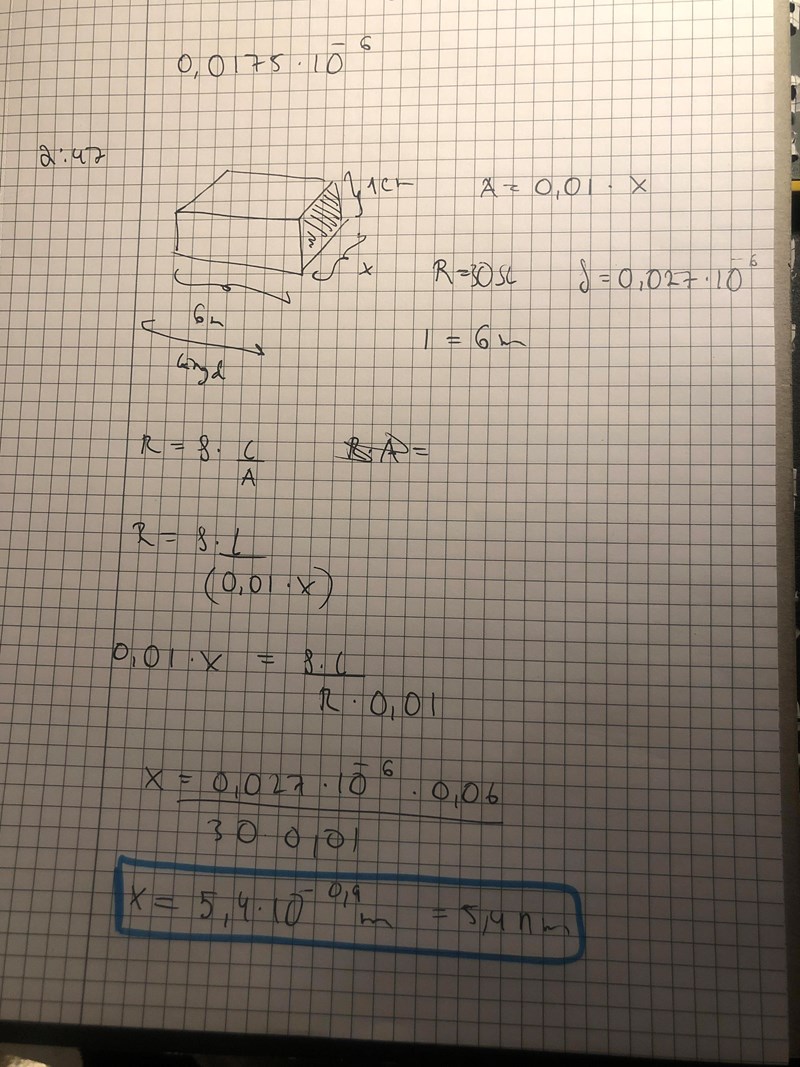 0,0175 · 10⁻⁶
2:47
1cm
A = 0,01 · x
x
R = 30Ω
ρ = 0,027 · 10⁻⁶
6m
l = 6m
längd
R = ρ · l/A
A =
R = ρ · l/(0,01 · x)
0,01 · x = ρ · l/R · 0,01
x = 0,027 · 10⁻⁶ · 0,06/30 · 0,01
x = 5,4 · 10⁻⁰,⁹ m = 5,4 nm